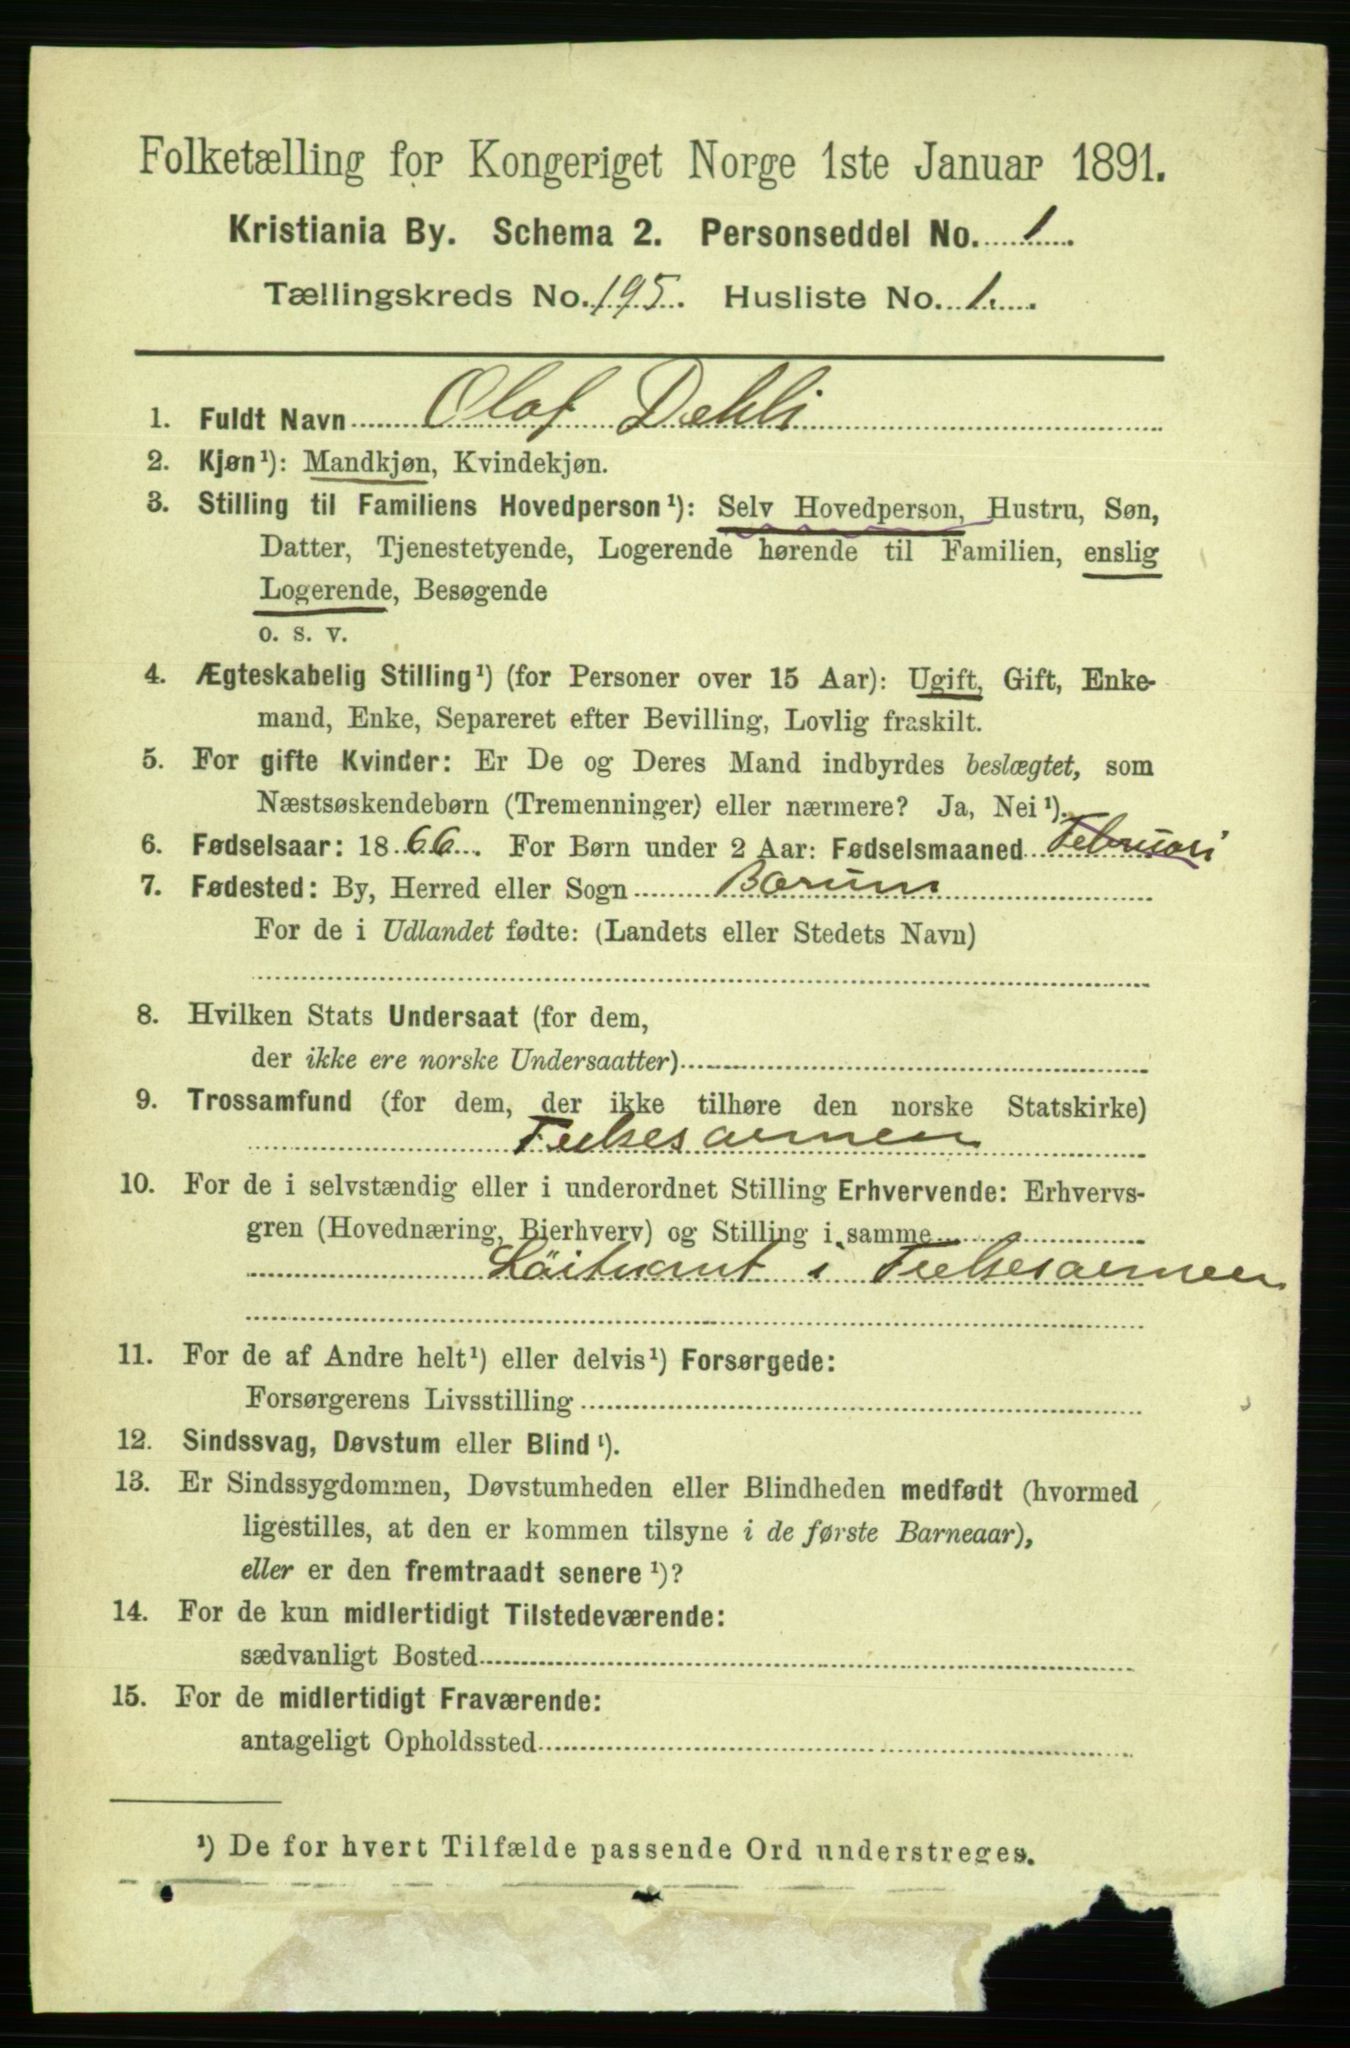 Folketælling for Kongeriget Norge 1ste Januar 1891.
Kristiania By. Schema 2. Personseddel No. 1
Tællingskreds No. 195. Husliste No. 1.
1. Fuldt Navn Olaf Dehli
2. Kjøn¹): Mandkjøn, Kvindekjøn.
3. Stilling til Familiens Hovedperson¹): Selv Hovedperson, Hustru, Søn,
Datter, Tjenestetyende, Logerende hørende til Familien, enslig
Logerende, Besøgende
o. s. v.
4. Ægteskabelig Stilling¹) (for Personer over 15 Aar): Ugift, Gift, Enke-
mand, Enke, Separeret efter Bevilling, Lovlig fraskilt.
5. For gifte Kvinder: Er De og Deres Mand indbyrdes beslægtet, som
Næstsøskendebørn (Tremenninger) eller nærmere? Ja, Nei¹).
6. Fødselsaar: 1866. For Børn under 2 Aar: Fødselsmaaned Februari
7. Fødested: By, Herred eller Sogn Bærum
For de i Udlandet fødte: (Landets eller Stedets Navn)
8. Hvilken Stats Undersaat (for dem,
der ikke ere norske Undersaatter)
9. Trossamfund (for dem, der ikke tilhøre den norske Statskirke)
Frelsesarmeen
10. For de i selvstændig eller i underordnet Stilling Erhvervende: Erhvervs-
gren (Hovednæring, Bierhverv) og Stilling i samme
Löitnant i Frelsesarmeen
11. For de af Andre helt¹) eller delvis¹) Forsørgede:
Forsørgerens Livsstilling
12. Sindssvag, Døvstum eller Blind¹).
13. Er Sindssygdommen, Døvstumheden eller Blindheden medfødt (hvormed
ligestilles, at den er kommen tilsyne i de første Barneaar),
eller er den fremtraadt senere¹)?
14. For de kun midlertidigt Tilstedeværende:
sædvanligt Bosted
15. For de midlertidigt Fraværende:
antageligt Opholdssted
¹) De for hvert Tilfælde passende Ord understreges.